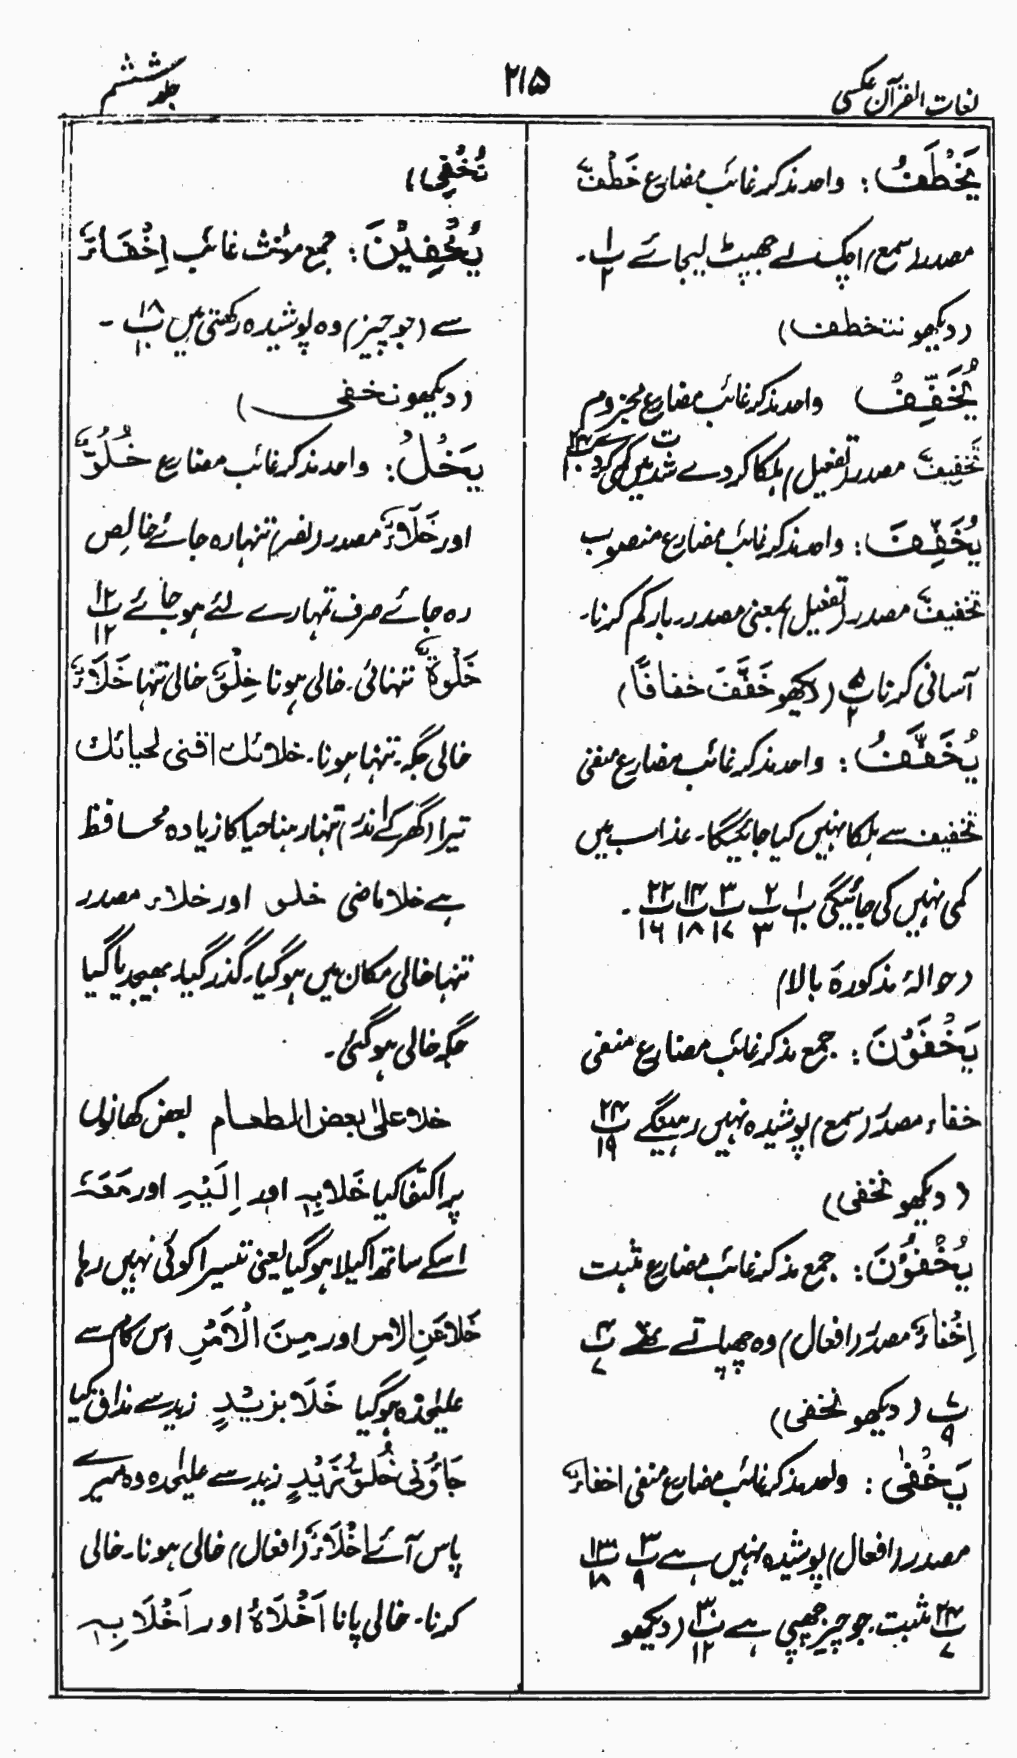 لغات القرآن عکسی
۲۱۵
جلد ششم
یَخْطَفُ: واحد مذکر غائب مضارع خَطْفٌ
مصدر (سمع) اچک لے جھپٹ لیجائے پ۱/۲۔
(دیکھو نتخطف)
یُخَفِّفُ واحد مذکر غائب مضارع مجزوم
تخفیفٌ مصدر (تفعیل) ہلکا کردے شدت میں کمی کردے پ۲۴
یُخَفِّفَ: واحد مذکر غائب مضارع منصوب
تخفیفٌ مصدر (تفعیل) بمعنی مصدر۔ بار کم کرنا۔
آسانی کرنا پ۵/۲ (دیکھو خَفَّفَ خفافًا)
یُخَفَّفُ: واحد مذکر غائب مضارع منفی
تخفیف سے ہلکا نہیں کیا جائیگا۔ عذاب میں
کمی نہیں کی جائیگی پ۱/۱۰ پ۲/۳ پ۳/۱۷ پ۱۴/۱۸ پ۲۲/۱۶۔
(حوالۂ مذکورہ بالا)
یَخْفَوْنَ: جمع مذکر غائب مضارع منفی
خفاء مصدر (سمع) پوشیدہ نہیں رہینگے پ۲۴/۱۹
(دیکھو تخفی)
یُخْفُوْنَ: جمع مذکر غائب مضارع مثبت
اِخْفاءٌ مصدر (افعال) وہ چھپاتے تھے پ۴/۷
پ۷/۹ (دیکھو تخفی)
یَخْفٰی: واحد مذکر غائب مضارع منفی اخفاءٌ
مصدر (افعال) پوشیدہ نہیں ہے پ۳/۹ پ۱۳/۱۸
پ۲۴/۷ مثبت۔ جو چیز چھپی ہے پ۳۰/۱۲ (دیکھو
تُخْفِی))
یُخْفِیْنَ: جمع مؤنث غائب اِخْفَاءٌ
سے (جو چیز) وہ پوشیدہ رکھتی ہیں پ۱۸/۱۰۔
(دیکھو تخفی)
یَخْلُ: واحد مذکر غائب مضارع خُلُوٌّ
اور خَلَاءٌ مصدر (نصر) تنہا رہ جائے خالص
رہ جائے صرف تمہارے لئے ہو جائے پ۱۲/۱۲
خَلْوۃٌ تنہائی۔ خالی ہونا خِلْوٌ خالی تنہا خَلَاءٌ
خالی جگہ۔ تنہا ہونا۔ خلائک اقنی لحیائک
تیرا (گھر کے اندر) تنہا رہنا حیا کا زیادہ محافظ
ہے خلا ماضی خلو اور خلاء مصدر
تنہا خالی مکان میں ہو گیا۔ گذر گیا۔ بھیجدیا گیا
جگہ خالی ہو گئی۔
خلا علیٰ بعض الطعام بعض کھانوں
پر اکتفا کیا خَلَا بِہٖ اور اِلَیْہِ اور مَعَہٗ
اسکے ساتھ اکیلا ہو گیا یعنی تیسرا کوئی نہیں رہا
خَلَا عَنِ الامر اور مِنَ الْاَمْرِ اس کام سے
علیٰحدہ ہو گیا خَلَا بزیْدٍ زید سے مذاق کیا
جَاؤُنی خُلُوَّ زَیْدٍ زید سے علیٰحدہ وہ میرے
پاس آئے اِخْلَاءٌ (افعال) خالی ہونا۔ خالی
کرنا۔ خالی پانا اَخْلَاہُ اور اَخْلَا بِہٖ